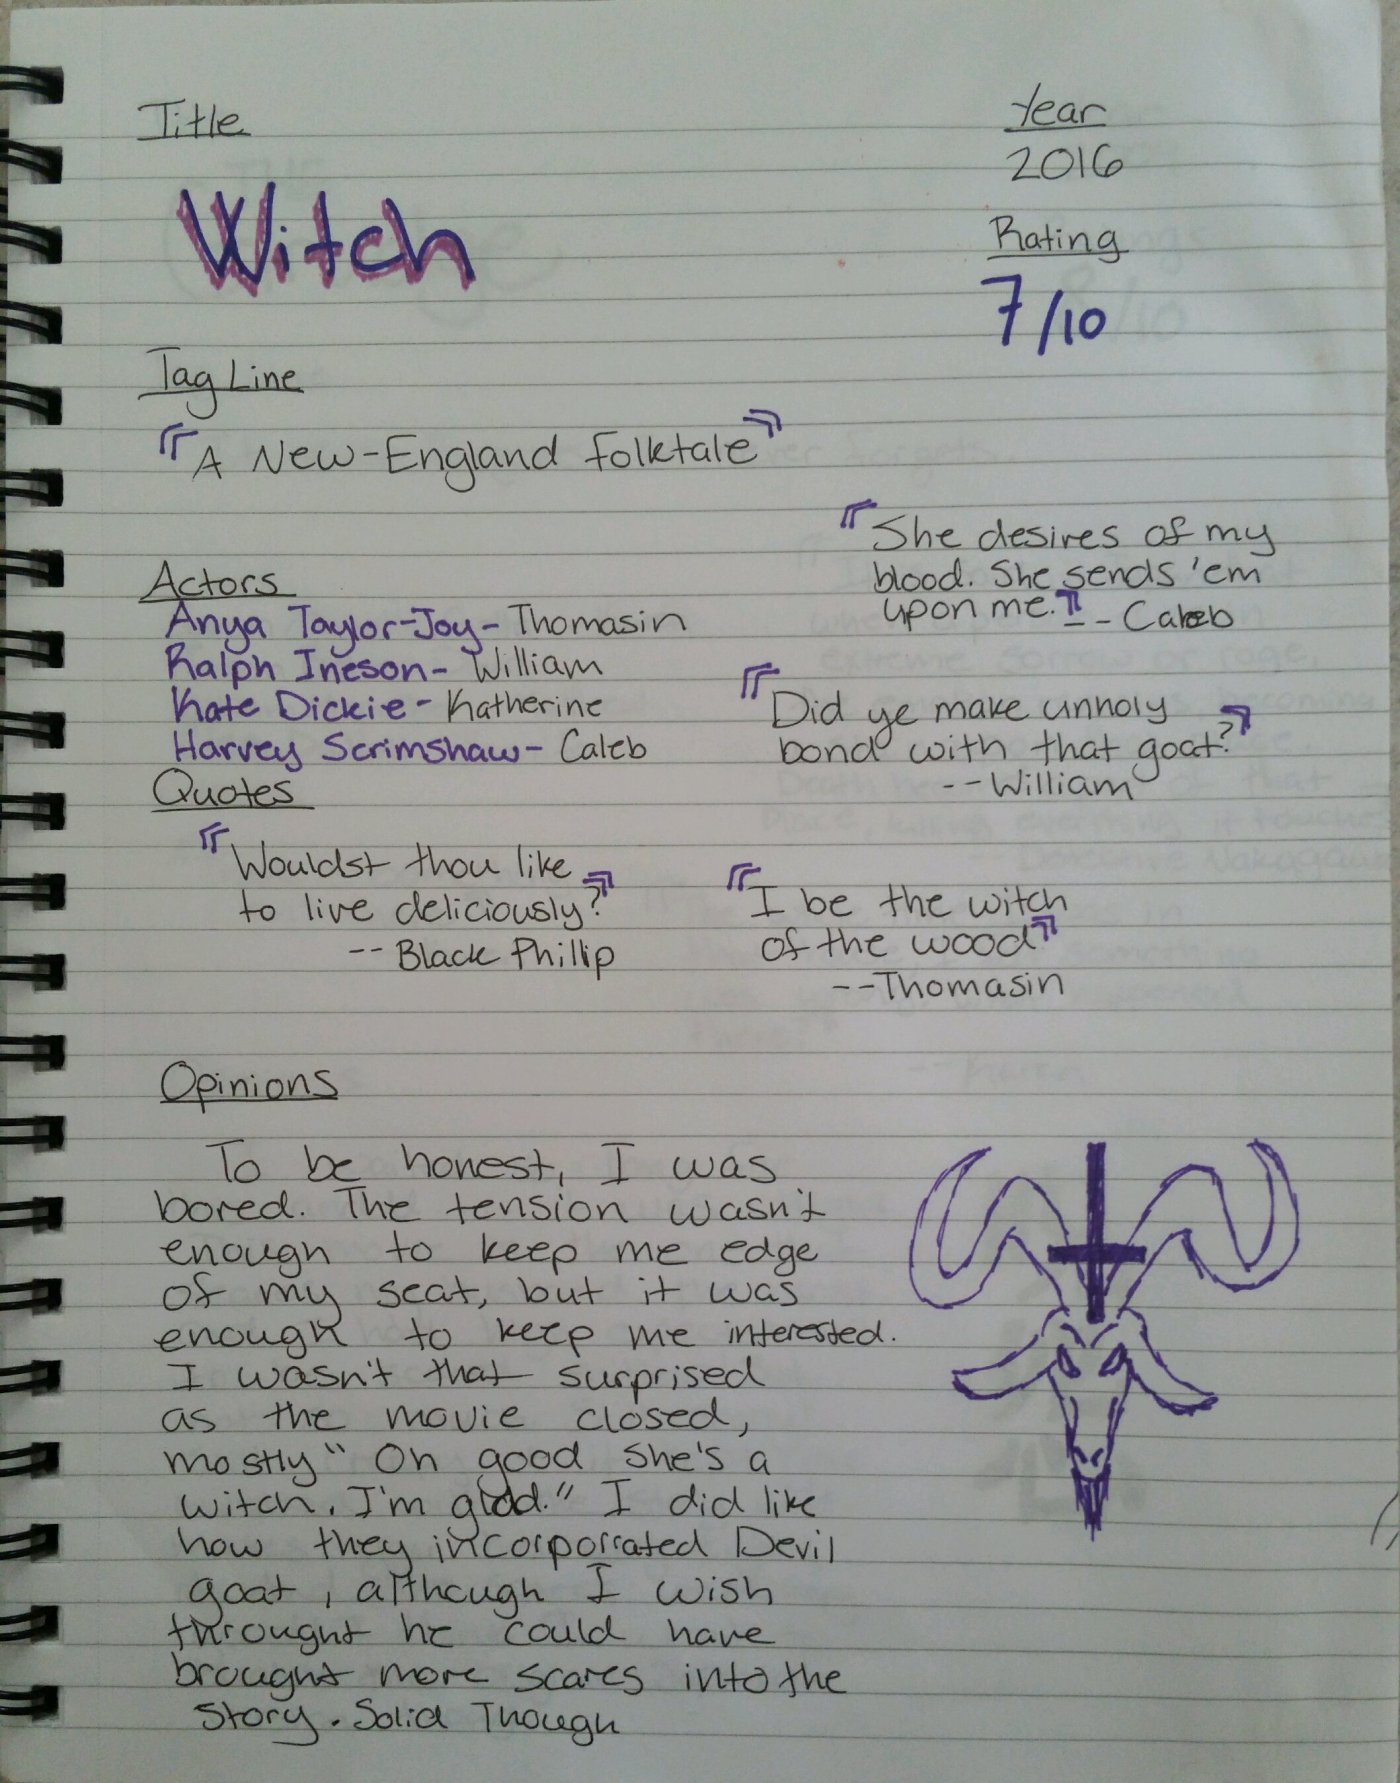 Title
Witch
Year
2016
Rating
7/10
Tag Line
"A New-England Folktale"
Actors
Anya Taylor-Joy- Thomasin
Ralph Ineson- William
Kate Dickie- Katherine
Harvey Scrimshaw- Caleb
"She desires of my
blood. She sends 'em
upon me." -- Caleb
"Did ye make unholy
bond with that goat?"
--William
Quotes
"Wouldst thou like
to live deliciously?"
-- Black Phillip
"I be the witch
of the wood"
--Thomasin
Opinions
To be honest, I was
bored. The tension wasn't
enough to keep me edge
of my seat, but it was
enough to keep me interested.
I wasn't that surprised
as the movie closed,
mostly "Oh good she's a
witch. I'm glad." I did like
how they incorporrated Devil
goat, although I wish
throught he could have
brought more scares into the
story. Solid Though